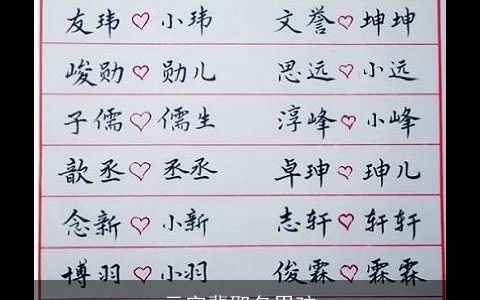 友玮♡小玮 文誉♡坤坤
峻勋♡勋儿 思远♡小远
子儒♡儒生 淳峰♡小峰
歆丞♡丞丞 卓珅♡珅儿
念新♡小新 志轩♡轩轩
博羽♡小羽 俊霖♡霖霖